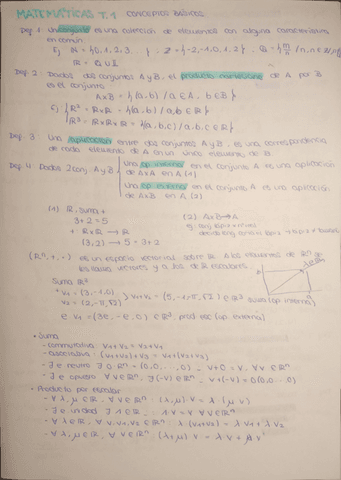 MATEMÁTICAS T.1 CONCEPTOS BÁSICOS
Def 1. Un conjunto es una colección de elementos con alguna característica
en común.
Ej N = {0,1,2,3... } , Z = {-2,-1,0,1,2} , Q = {m/n / n,m ∈
R = Q ∪ I
Def 2. Dados dos conjuntos A y B, el producto cartesiano de A por B
es el conjunto
A x B = {(a,b) / a ∈ A, b ∈ B}
R² = R x R = {(a,b) / a,b ∈ R}
R³ = R x R x R = {(a,b,c) / a,b,c ∈ R}
Def 3. Una aplicación entre dos conjuntos A y B, es una correspondencia
de cada elemento de A con un único elemento de B.
Def 4. Dados 2 conj A y B
Una op interna en el conjunto A es una aplicación
de A x A en A (1)
Una op externa en el conjunto A es una aplicación
de A x B en A (2)
(1) R, suma +
3 + 2 = 5
+ R x R → R
(3,2) → 5 = 3+2
(2) A x B → A
(Rⁿ, +, ·) es un espacio vectorial sobre R. A los elementos de Rⁿ
vectores y a los de R escalares.
Suma R³
+ v1 = (3,-1,0)
v1+v2 = (5, ∈ R³ suma (op interna)
prod esc (op externa)
• Suma
- conmutativa v1+v2 = v2+v1
- asociativa (v1+v2)+v3 = v1+(v2+v3)
- ∃ e neutro ∃ 0 = (0,0,...,0) v+0 = v ∀v ∈ Rⁿ
- ∃ e opuesto ∀v ∈ Rⁿ, ∃(-v) ∈ Rⁿ v+(-v) = 0(0,0...0)
• Producto por escalar
- ∀ λ, μ ∈ R, ∀ v ∈ Rⁿ (λ·μ) v = λ (μ v)
- ∃ e unidad ∃ 1 ∈ R 1·v = v ∀ v ∈ Rⁿ
- ∀ λ ∈ R, ∀ v1, v2 ∈ Rⁿ λ (v1+v2) = λ v1 + λ v2
- ∀ λ, μ ∈ R, ∀ v ∈ Rⁿ (λ+μ) v = λ v + μ v